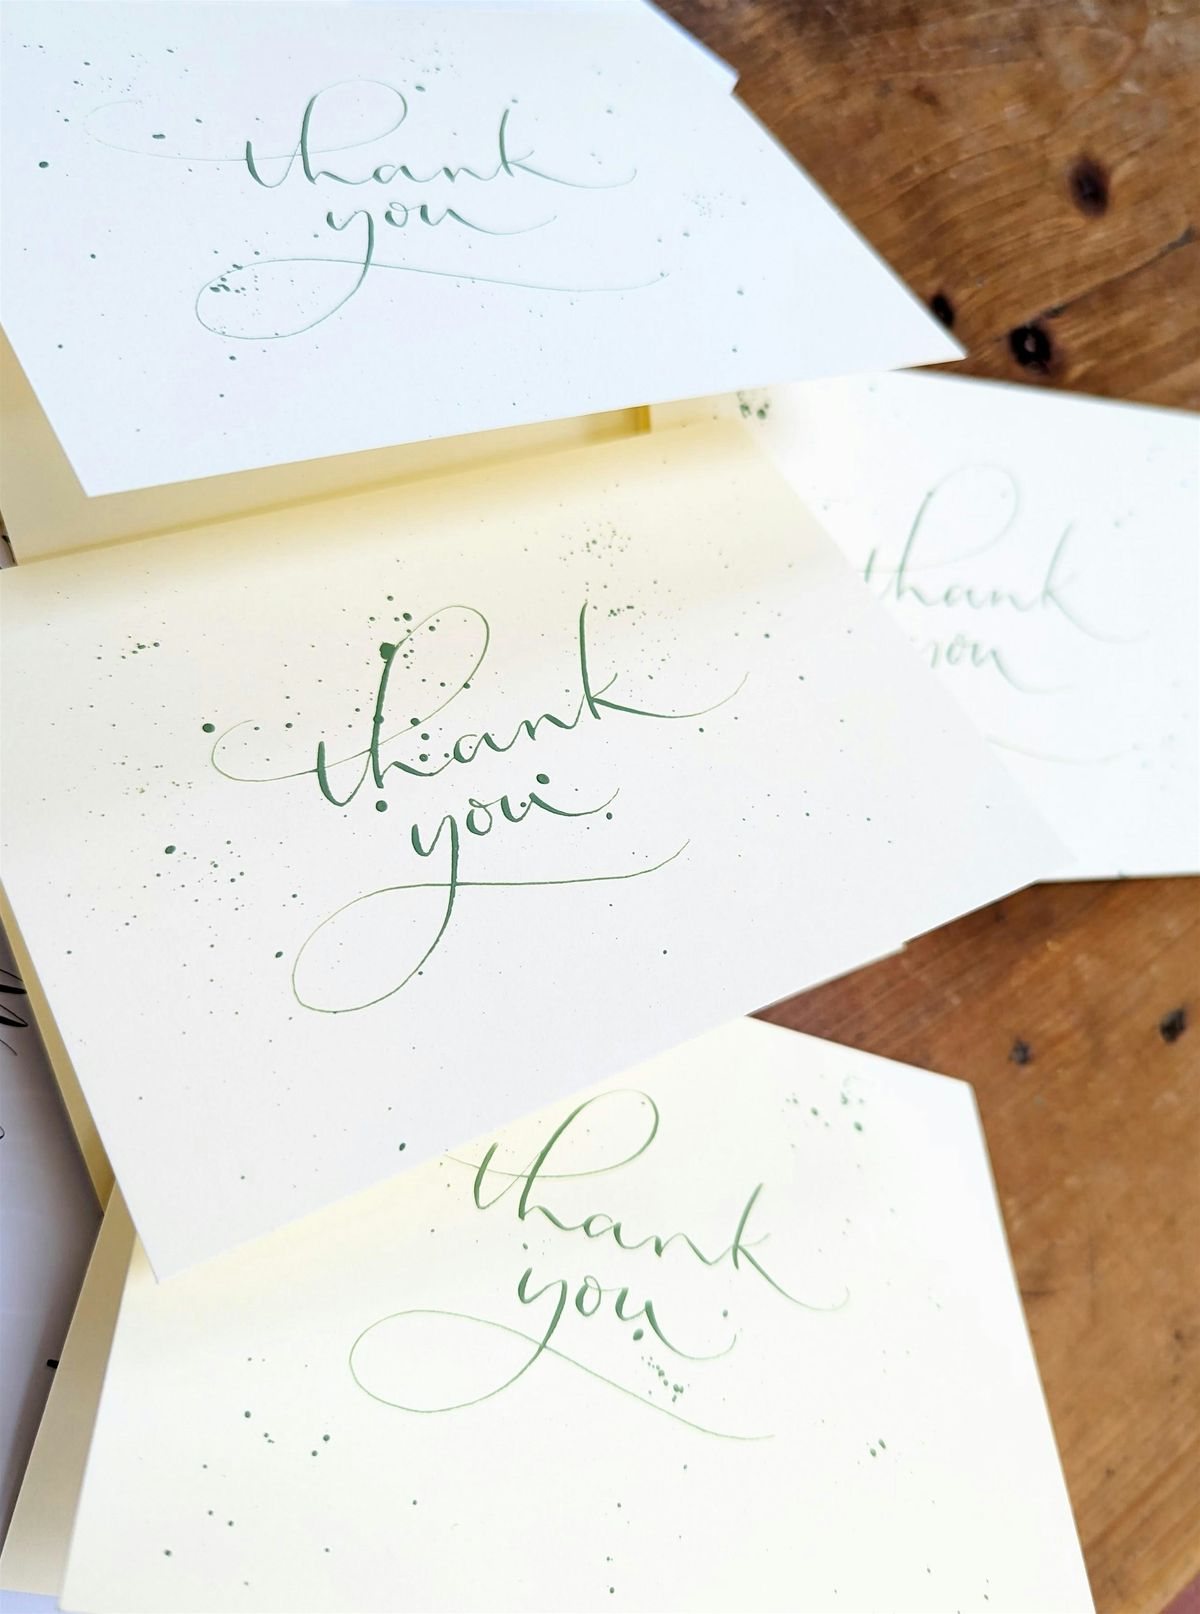 thank
you
thank
you
thank
you
thank
you